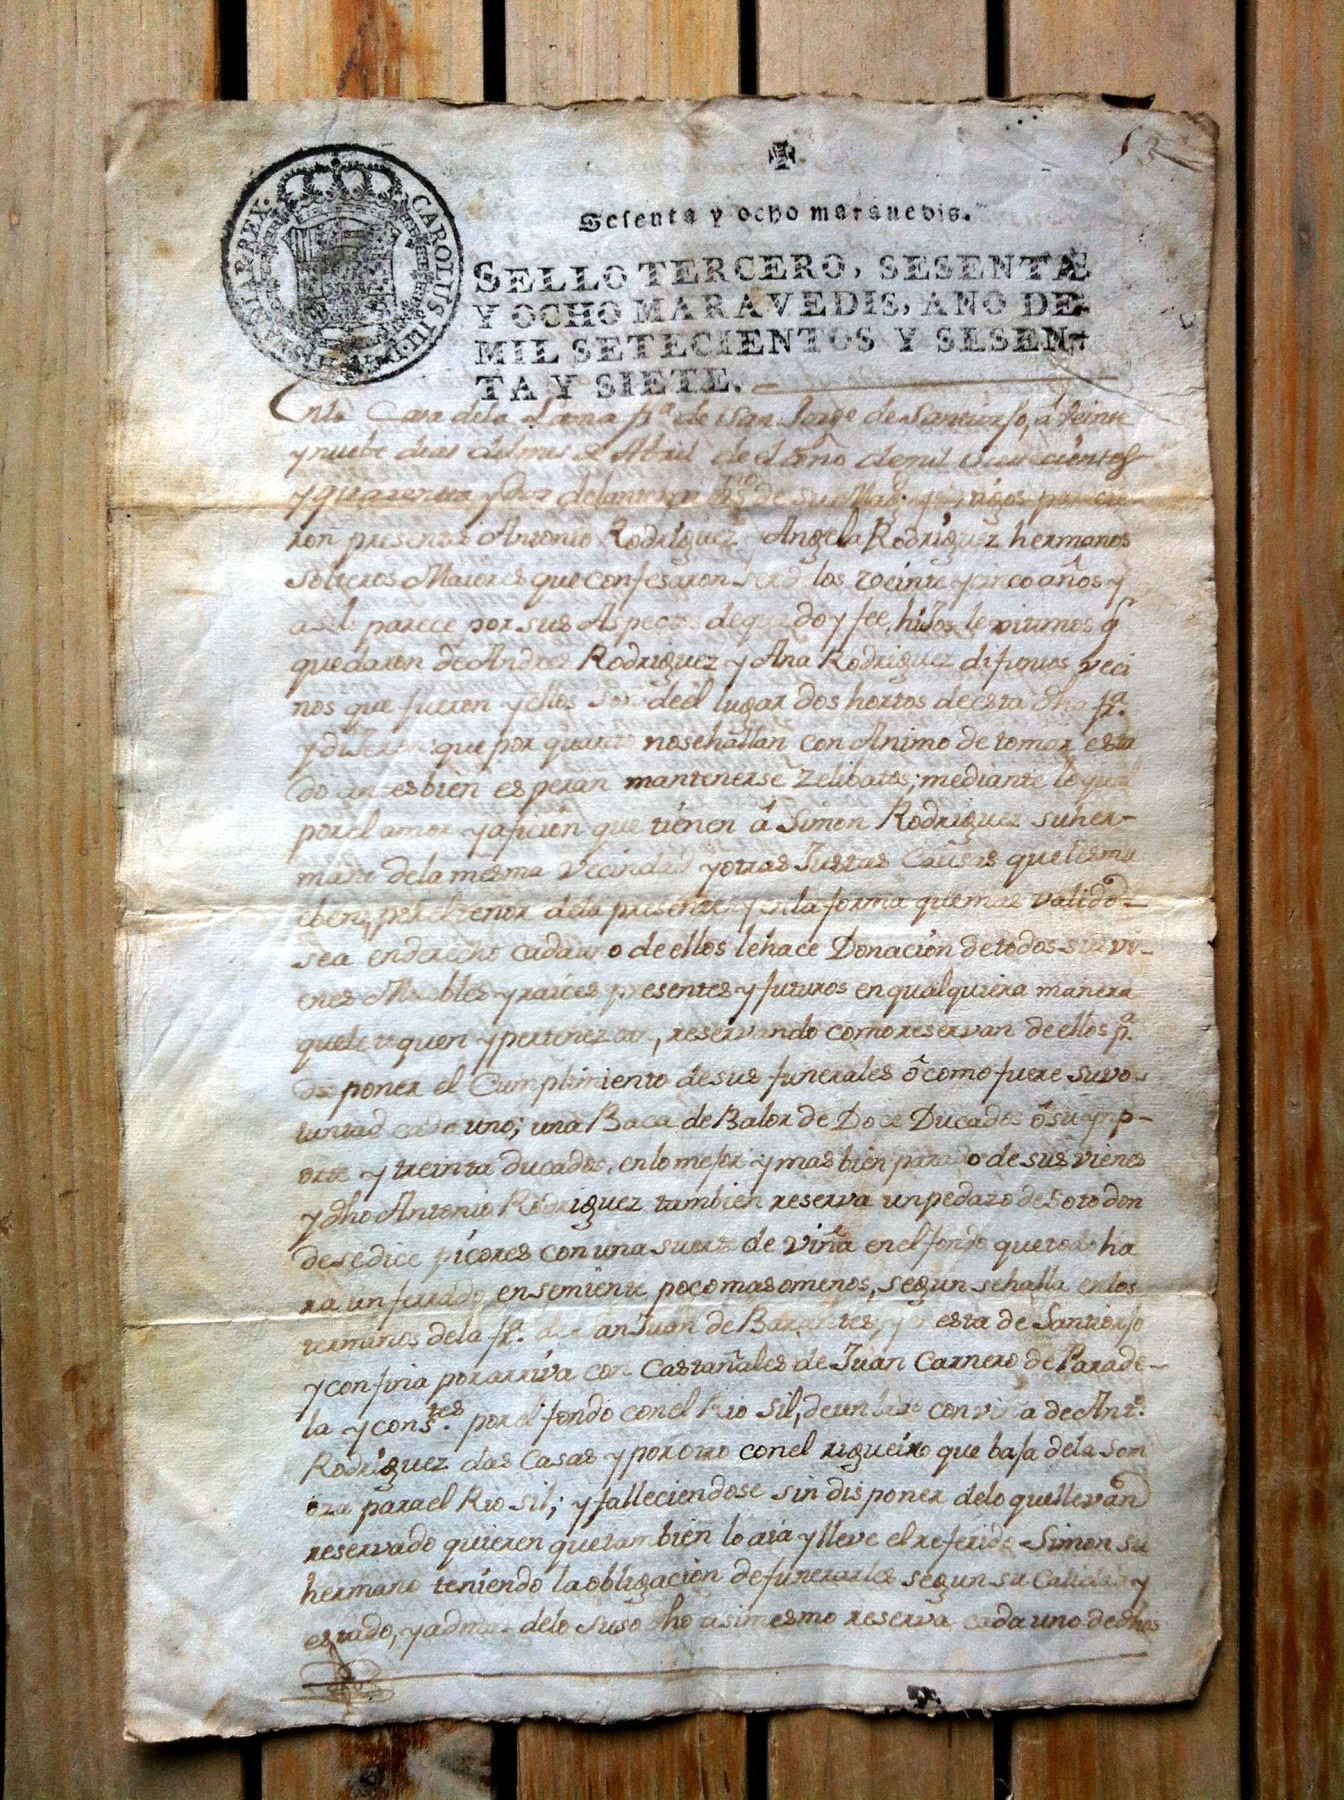 CAROLUS III D G HISPANIAR REX
Sesenta y ocho marauedis.
SELLO TERCERO, SESENTA
Y OCHO MARAVEDIS, AÑO DE
MIL SETECIENTOS Y SESEN-
TA Y SIETE.
Casa dela frª. de San Jorge de Santiorjo, a Veinte
y nuebe dias del mes de Abril de el año demil setecientos
y quarenta y dos delante mi de su Magd. y tigos parecie
ron presentes Antonio Rodriguez y Angela Rodriguez hermanos
solteros Maiores que confesaron ser de los Veinte y cinco años y
asi lo parece por sus Aspectos de que doy fee, hijos lexitimos q
quedaron de Andres Rodriguez y Ana Rodriguez difuntos veci
nos que fueron y ellos son deel lugar dos hortos de esta dha frª.
y dijeron que por quanto nosehallan con Animo de tomar esta
do antes bien esperan mantenerse Zelibatos; mediante lo qual
por el amor y afición que tienen á Simon Rodriguez suher-
mano dela mesma Vecindad y otras Justas Causas que
por el tenor dela presente y enla forma que mas valido
sea enderecho cada uno de ellos lehace Donación detodos sus vi-
enes Muebles y raices presentes y futuros en qualquiera manera
que le toquen y pertenezcan, reservando como reservan de ellos pª.
disponer el Cumplimiento desus funerales ó como fuere suvo-
luntad cada uno; una Baca de Balor de Doce Ducados ó su ymp-
orte y treinta ducados, enlo mejor y mas bien parado de sus vienes
y dho Antonio Rodriguez tambien reserva un pedazo de Soto don
de se dice picores con una suerte de viña en el fondo que todo ha
ra un ferrado ensemiente pocomasomenos, segun sehalla enlos
terminos dela frª. de San Juan de Barantes, y esta de Santiorjo
y confina por arriva con Castañales de Juan Carnero de Parade-
la y consortes. por el fondo conel Rio Sil, deun lado con viña de Antº.
Rodriguez das Casas y por otro conel rigueiro que baja dela Som
bra parael Rio sil; y falleciendose sin disponer delo quellevan
reservado quieren quetambien lo aia y lleve el referido Simon su
hermano teniendo la obligacion defunerarlos segun su Calidad y
estado, y ademas delo suso dho asimesmo reserva cada uno de dhos